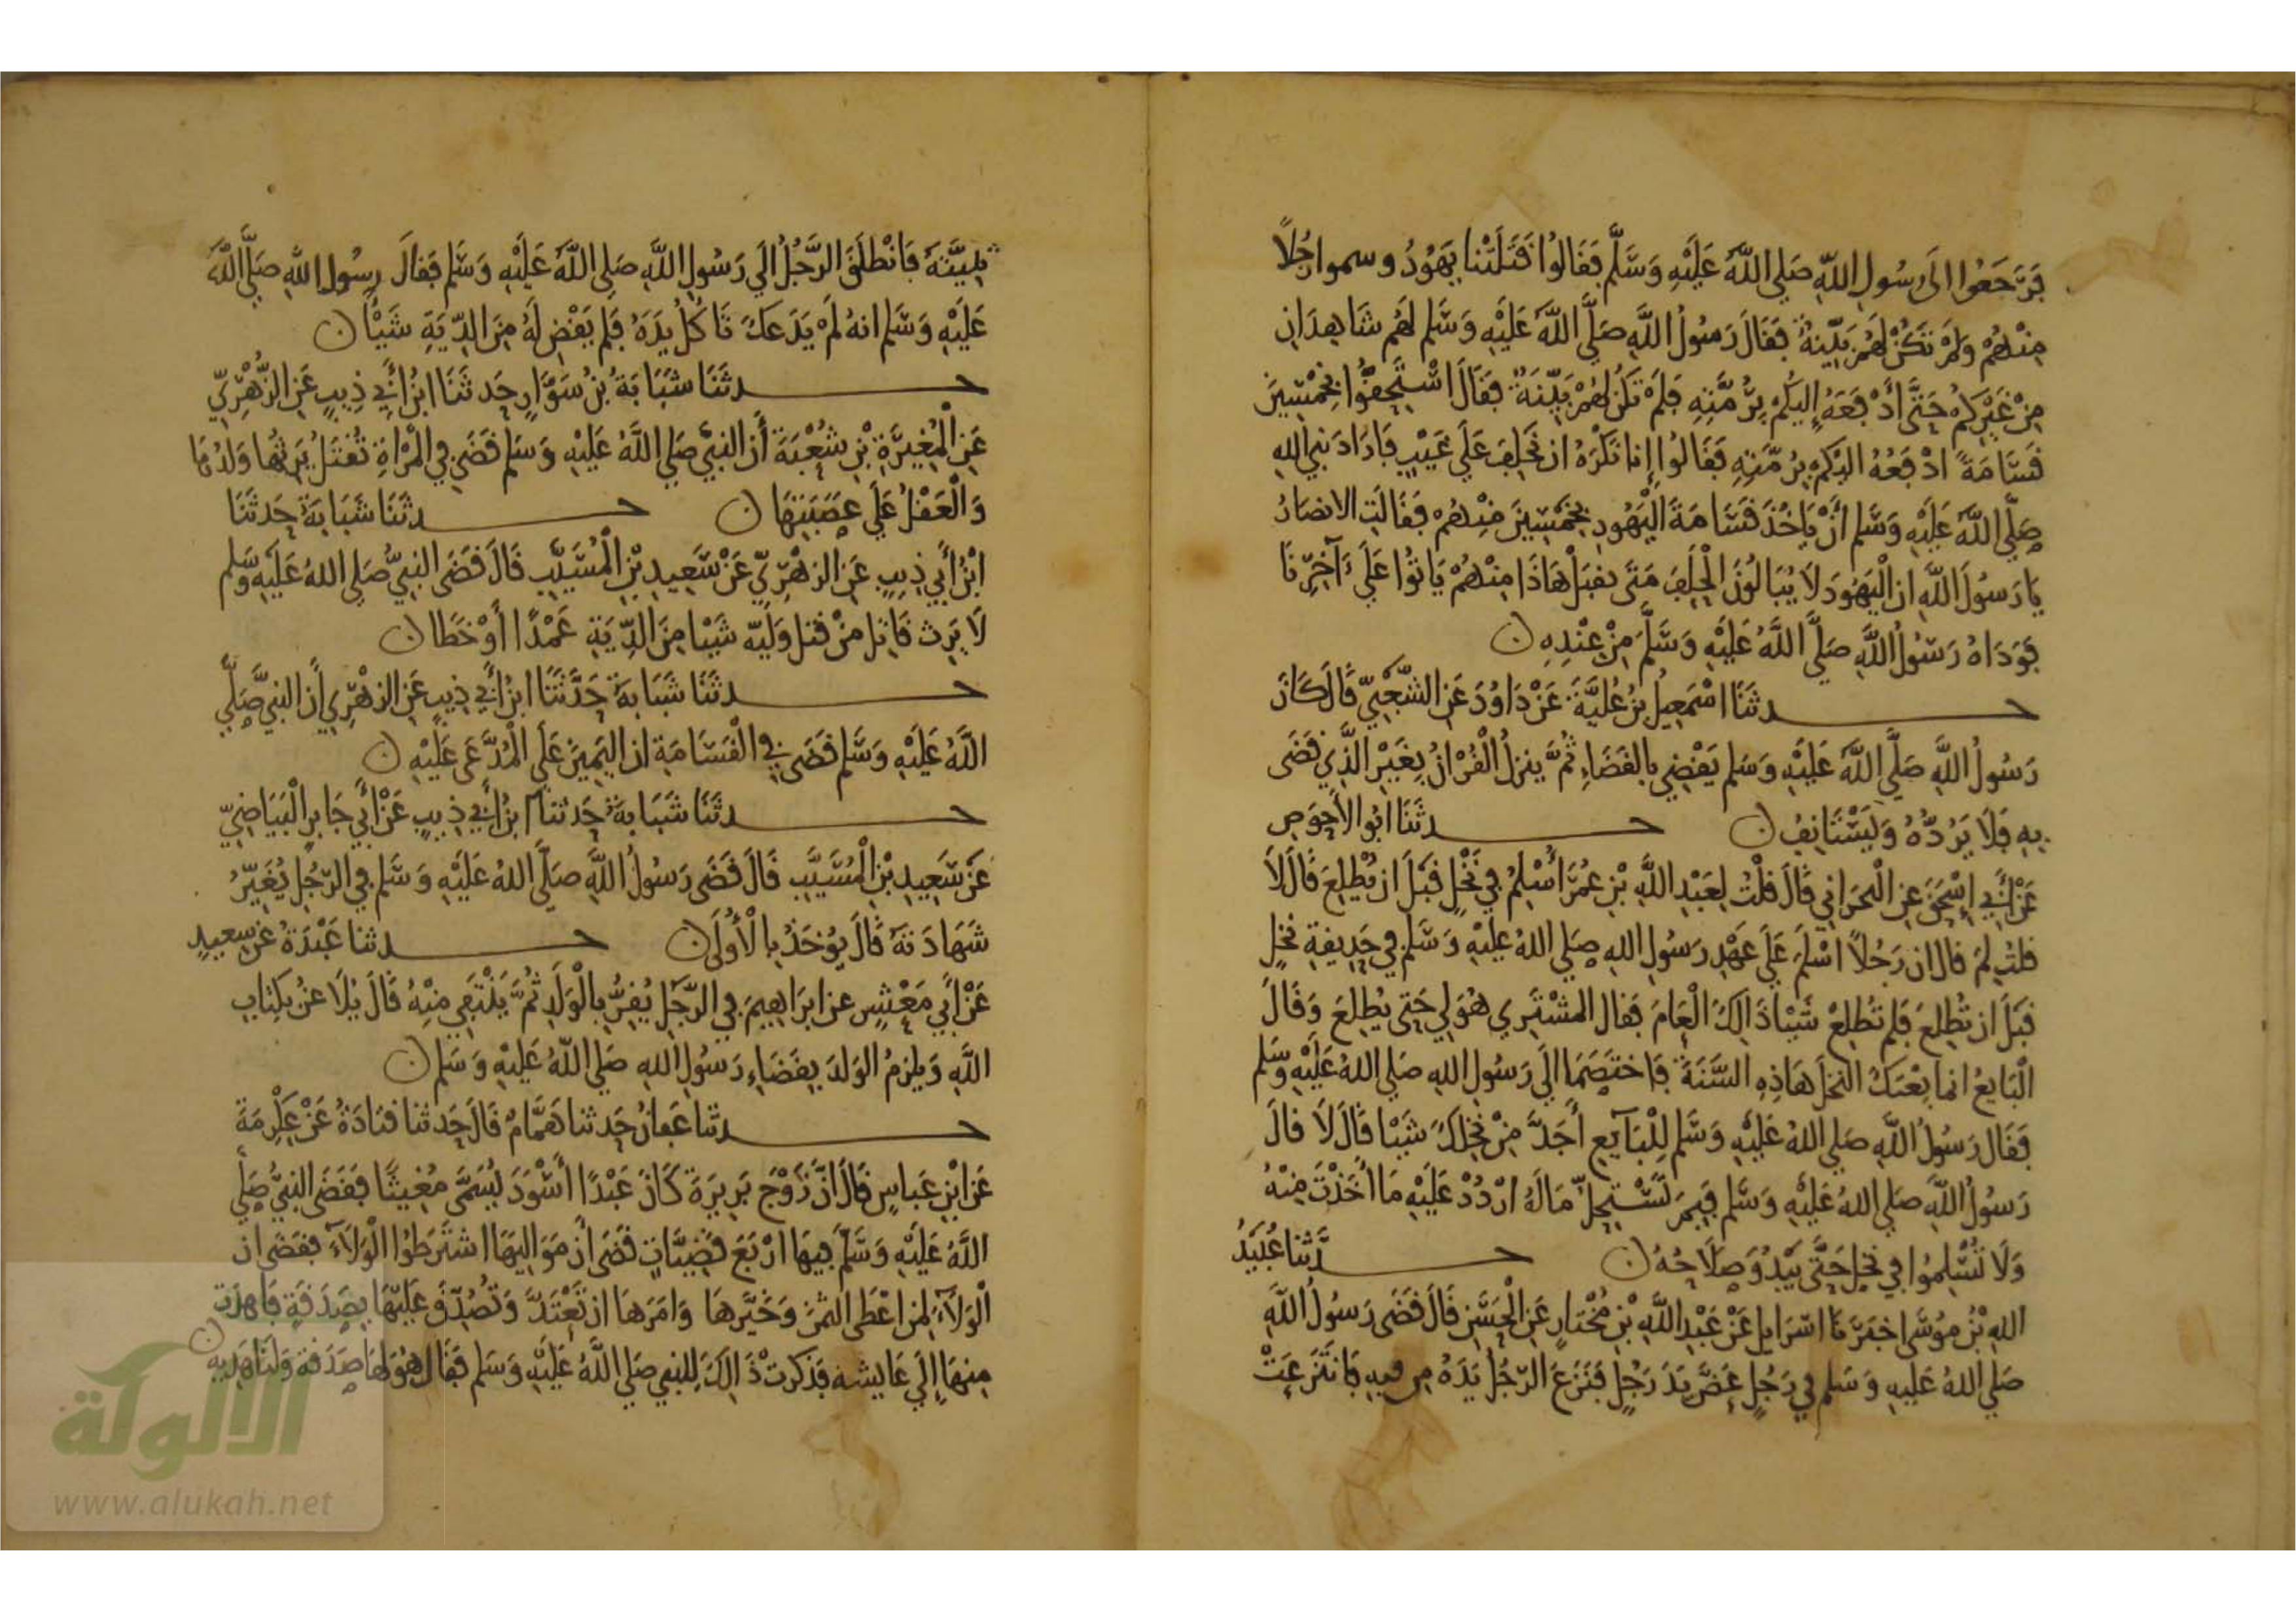 فَرَجَعُوا الَى رَسُولِ اللَّهِ صَلى اللَّهُ عَلَيْهِ وَسَلَّمَ فَقَالُوا قَتَلَتْنا يَهُودُ وسموا رَجُلاً
مِنْهُمْ وَلَمْ تَكُنْ لَهُمْ بَيِّنَةٌ فَقَالَ رَسُولُ اللَّهِ صَلَّى اللَّهُ عَلَيْهِ وَسَلم لَهُم شَاهِدَانِ
مِنْ غَيْرِكُمْ حَتَّى أَدْفَعَهُ إِلَيْكُمْ بِرُمَّتِهِ فَلَمْ تَكُنْ لَهُمْ بَيِّنَةٌ فَقَالَ اسْتَحِقُّوا بِخَمْسِينَ
قَسَامَةً ادْفَعُهُ الَيْكُمْ بِرُمَّتِهِ فَقَالُوا إِنا نَكْرَهُ ان نَحْلِفَ عَلَى غَيْبٍ فَارَادَ نبي الله
صَلَّى اللَّهُ عَلَيْهِ وَسَلم أَنْ يَاخُذَ قَسَامَةَ الْيَهُودِ بِخَمْسِينَ مِنْهُمْ فَقَالَتِ الانصَارُ
يَا رَسُولَ اللَّهِ ان الْيَهُودَ لاَ يُبَالُونَ الْحَلِفَ مَتَى نقبَلْ هَاذَا مِنْهُمْ يَاتُوا عَلَى آخَرِنَا
فَوَدَاهُ رَسُولُ اللَّهِ صَلَّى اللَّهُ عَلَيْهِ وَسَلَّمَ مِنْ عِنْدِهِ ن
حدثَنَا اسْمَعِيلُ بْنُ عُلَيَّةَ عَنْ دَاوُدَ عَنِ الشَّعْبِيِّ قَالَ كَانَ
رَسُولُ اللَّهِ صَلَّى اللَّهُ عَلَيْهِ وَسَلم يَقْضِي بِالقَضَاءِ ثُمَّ ينزلُ الْقُرْانُ بِغَيْرِ الَّذِي قَضَى
بِهِ فَلاَ يَرُدُّهُ وَيَسْتَانِفُ ن حدثَنَا ابُو الأَحْوَصِ
عَنْ أَبِي إِسْحَقَ عَنِ النجْرَانِي قَالَ قُلْتُ لِعَبْدِ اللَّهِ بْنِ عُمَرَ أُسْلِمُ فِي نَخْلٍ قَبْلَ ان يُطْلِعَ قَالَ لاَ
قلتُ لِمَ قال ان رَجُلاً اسْلَمَ عَلَى عَهْدِ رَسُولِ اللهِ صَلى اللهُ عَلَيْهِ وَسَلم فِي حَدِيقَةِ نخلٍ
قَبْلَ ان تُطْلِعَ فَلَم تُطْلِعْ شَيْئا ذَالِكَ الْعَامَ فَقال المشْتَرِي هُوَ لِي حَتى يُطْلِعَ وَقَالَ
الْبَايعُ انما بِعْتكَ النخلَ هَاذِهِ السَّنَةَ فَاختَصَمَا الَى رَسُولِ اللهِ صَلى اللهُ عَلَيْهِ وَسَلم
فَقَالَ رَسُولُ اللَّهِ صَلى اللهُ عَلَيْهِ وَسَلم لِلْبَايِعِ أَجَدَّ مِنْ نخْلِكَ شَيْئا قَالَ لاَ قالَ
رَسُولُ اللَّهِ صَلى اللهُ عَلَيْهِ وَسَلم فَبِمَ تَسْتَحِلُّ مَالَهُ ارْدُدْ عَلَيْهِ مَا أَخَذْتَ مِنْهُ
وَلاَ تُسْلِمُوا فِي نَخْلٍ حَتَّى يَبْدُوَ صَلاَحُهُ ن حدَّثنا عُبَيْدُ
اللهِ بْنُ مُوسَى اخبَرَنَا اسْرَايِل عَنْ عَبْدِ اللَّهِ بْنِ مُخْتَارٍ عَنِ الْحَسَنِ قَالَ قَضَى رَسُولُ اللَّهِ
صَلى اللهُ عَلَيهِ وَسَلم فِي رَجُلٍ عَضَّ يَدَ رَجُلٍ فَنَزَعَ الرَّجُلُ يَدَهُ مِن فِيهِ فَانتَزَعَتْ
ثَنِيَّتهُ فَانْطَلَقَ الرَّجُلُ الَي رَسُولِ اللَّهِ صَلى اللَّهُ عَلَيْهِ وَسَلم فَقالَ رسُولُ اللَّهِ صَلَّى اللَّهُ
عَلَيْهِ وَسَلم انهُ لَمْ يَدَعكَ تَاكُلُ يَدَهُ فَلم يَقْضِ لَهُ مِنَ الدِّيَةِ شَيْئًا ن
حدثَنَا شَبَابَةُ بْنُ سَوَّارٍ حَدثَنَا ابْنُ أَبِي ذِيبٍ عَنِ الزُّهْرِيِّ
عَنِ الْمُغِيرَةِ بْنِ شُعْبَةَ أَنَّ النبِيَّ صَلى اللَّهُ عَلَيْهِ وَسَلم قَضَى فِي الْمَرْاةِ تُقْتَلُ يَرِثُهَا وَلَدُهَا
وَالْعَقْلُ عَلَى عَصَبَتِهَا ن حدثَنَا شَبَابَةُ حَدثَنَا
ابْنُ أَبِي ذِيبٍ عَنِ الزهْرِيِّ عَنْ سَعِيدِ بْنِ الْمُسَيَّبِ قَالَ قَضَى النبِيُّ صَلى اللهُ عَلَيْهِ وَسَلم
لَا يَرِث قَاتِل مِنْ قتل وَلِيّه شَيْئا مِنَ الدِّيَةِ عَمْدًا أَوْ خَطَا ن
حدثَنَا شَبَابَةُ حَدَّثَنَا ابْنُ أَبِي ذِيبٍ عَنِ الزهْرِيِّ أَن النبِيَّ صَلَّى
اللَّهُ عَلَيْهِ وَسَلم قَضَى فِي الْقَسَامَةِ ان الْيَمِينَ عَلَى الْمُدَّعَى عَلَيْهِ ن
حدثَنَا شَبَابَةُ حَدثنا ابْنُ أَبِي ذِيبٍ عَنْ أَبِي جَابِرٍ الْبَيَاضِيِّ
عَنْ سَعِيدِ بْنِ الْمُسَيَّبِ قَالَ قَضَى رَسُولُ اللَّهِ صَلَّى اللهُ عَلَيْهِ وَسَلم فِي الرَّجُلِ يُغَيِّرُ
شَهَادَتهُ قَالَ يُوْخَذُ بِالْأُولَى ن حدثنا عَبْدَةُ عَنْ سعِيدٍ
عَنْ أَبِي مَعْشَرٍ عن ابرَاهِيمَ فِي الرَّجُلِ يُقِرُّ بِالْوَلَدِ ثُمَّ يَنْتَفِي مِنْهُ قَالَ يُلَاعنُ بِكِتَابِ
اللَّهِ وَيلزَمُ الوَلَدَ بِقَضَاءِ رَسُولِ اللهِ صَلى اللَّهُ عَلَيْهِ وَسَلم ن
حدثنا عَفانُ حَدثنا هَمَّامٌ قَالَ حَدثنا قتَادَةُ عَنْ عِكْرِمَةَ
عَنِ ابْنِ عَبَاسٍ قَالَ انَّ زَوْجَ بَرِيرَةَ كَانَ عَبْدًا أَسْوَدَ يُسَمَّى مُغِيثًا فَقَضَى النبِيُّ صَلَّى
اللَّهُ عَلَيْهِ وَسَلَّمَ فِيهَا ارْبَعَ قَضِيَّاتٍ قَضَى أَنَّ مَوَالِيَهَا اشتَرَطُوا الْوَلَآءَ فَقَضَى ان
الْوَلَآءَ لِمَنْ اعْطَى الثمَنَ وَخَيَّرهَا وَامَرَهَا ان تَعْتَدَّ وَتُصُدِّقَ عَلَيْهَا بِصَدَقَةٍ فَاهدَت
مِنهَا إِلَى عَايِشة فَذكَرتْ ذَالِكَ لِلنبي صَلى اللَّهُ عَلَيْهِ وَسَلم فَقَالَ هُوَ لَهَا صَدَقة وَلَنَا هَدِيه ن
الألوكة
www.alukah.net